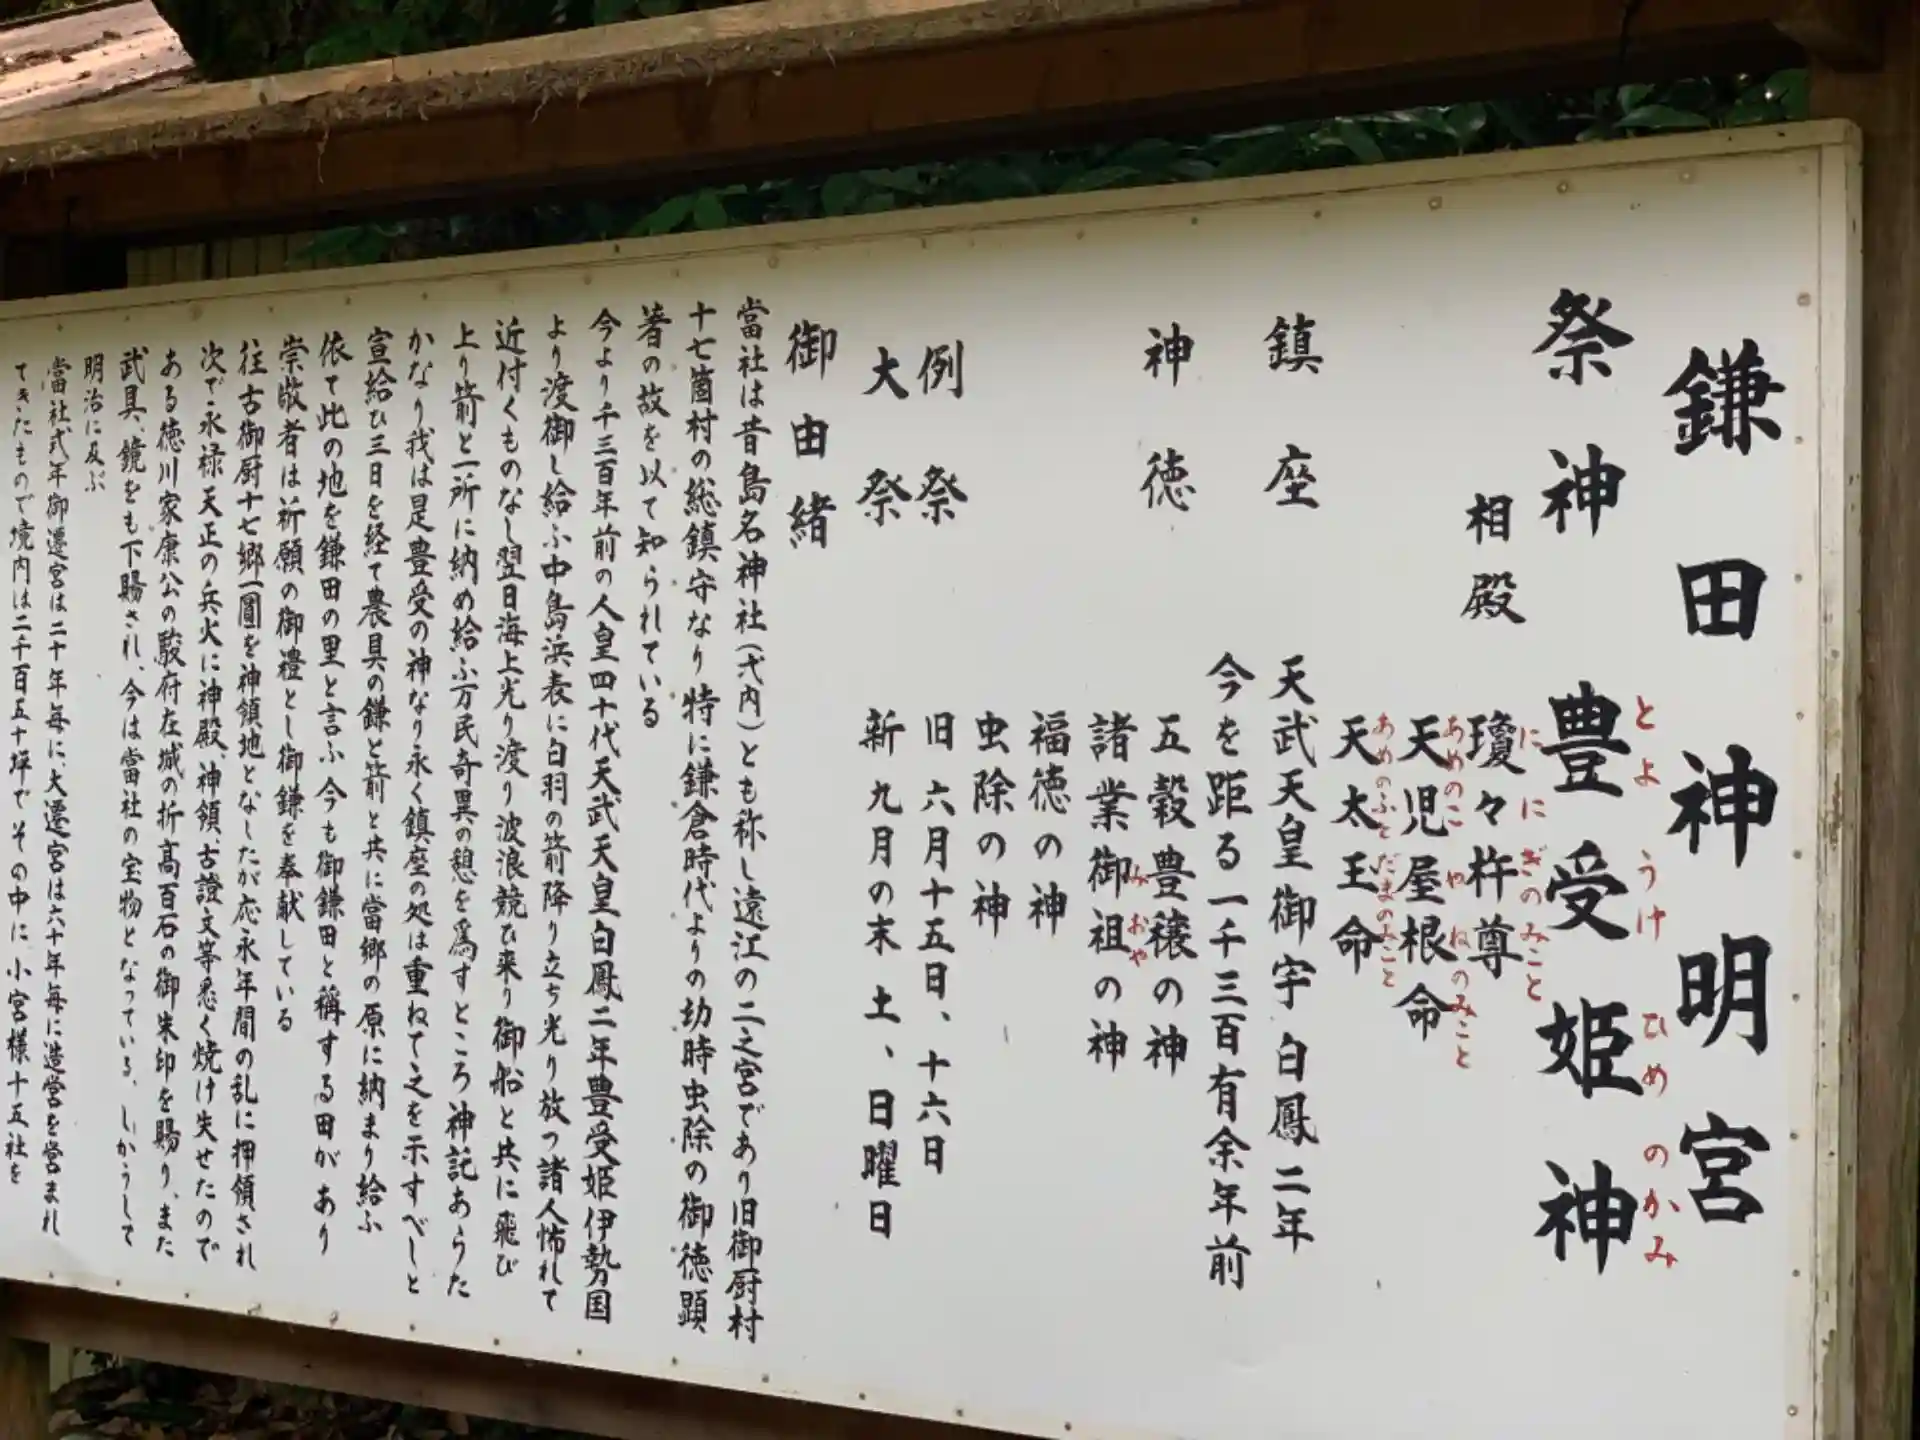 鎌田神明宮
祭神 豊受姫神
とようけひめのかみ
相殿 瓊々杵尊
ににぎのみこと
天児屋根命
あめのこやねのみこと
天太王命
あめのふとだまのみこと
鎮座 天武天皇御宇白鳳二年
今を距る一千三百有余年前
神徳 五穀豊穣の神
諸業御祖の神
みおや
福徳の神
虫除の神
例祭 旧六月十五日、十六日
大祭 新九月の末土、日曜日
御由緒
當社は昔島名神社(式内)とも称し遠江の二之宮であり旧御厨村
十七箇村の総鎮守なり特に鎌倉時代よりの幼時虫除の御徳顕
著の故を以て知られている
今より千三百年前の人皇四十代天武天皇白鳳二年豊受姫伊勢国
より渡御し給ふ中島浜表に白羽の箭降り立ち光り放つ諸人怖れて
近付くものなし翌日海上光り渡り波浪競ひ来り御船と共に飛び
上り箭と一所に納め給ふ万民奇異の憩を為すところ神託あらた
かなり我は是豊受の神なり永く鎮座の処は重ねて之を示すべしと
宣給ひ三日を経て農具の鎌と箭と共に當郷の原に納まり給ふ
依て此の地を鎌田の里と言ふ今も御鎌田と稱する田があり
崇敬者は祈願の御禮とし御鎌を奉献している
往古御厨十七郷一圓を神領地となしたが応永年間の乱に押領され
次で永禄天正の兵火に神殿、神領、古證文等悉く焼け失せたので
ある徳川家康公の駿府在城の折高百石の御朱印を賜り、また
武具、鏡をも下賜され、今は當社の宝物となっている、しかうして
明治に及ぶ
當社式年御遷宮は二十年毎に大遷宮は六十年毎に造営を営まれ
てきたもので境内は二千百五十坪でその中に小宮様十五社を